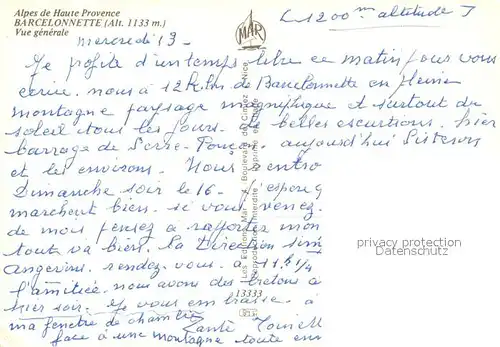 Alpes de Haute Provence
BARCELONNETTE (Alt. 1133 m.)
Vue générale
(1200m altitude)
MAR
mercredi 13 -
Je profite d'un temps libre ce matin pour vous
écrire. nous à 12 klm de Barcelonnette en pleine
montagne paysage magnifique et surtout du
soleil tous les jours. de belles escurtions. hier
barrage de Serre-Ponçon. aujourd'hui Sisteron
et les environs. Nous
Dimanche soir le 16.
marchent bien. si vous venez
de mois pensez a rapporter mon
tout va bien. la Direction
angevins. rendez vous a 11h 1/4
l'amitiée. nous avons des bretons à
hier soir. Je vous embrasse. à
ma fenêtre de chambre Tante
face à une montagne toute
Les Editions Mar - Boulevard de Cimiez - Nice
Reproduction Interdite Imprimé en
13333
privacy protection
Datenschutz